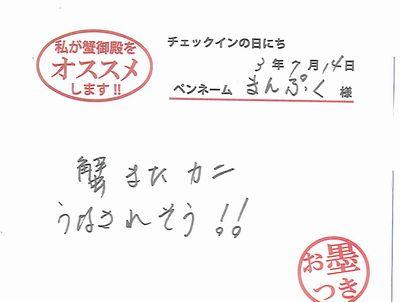 私が蟹御殿を
オススメ
します!!
チェックインの日にち
3年7月14日
ペンネーム まんぷく 様
蟹またカニ
うなされそう!!
お墨
つき